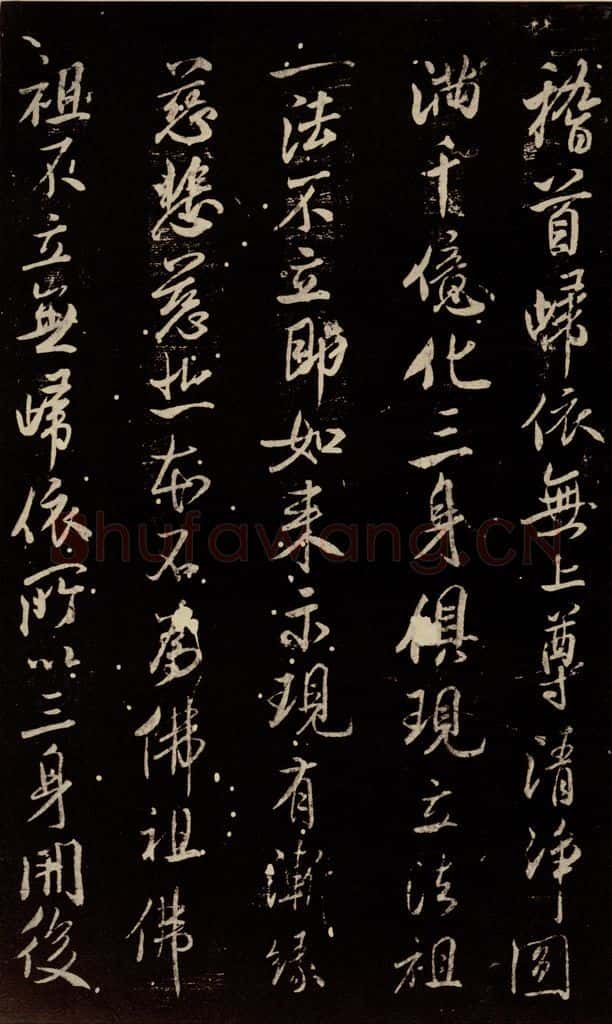 稽首歸依無上尊清淨圓
滿千億化三身俱現立法祖
一法不立即如来示現有漸緣
慈悲慈悲本不為佛祖佛
祖不立無歸依所以三身開後
shufawang.CN